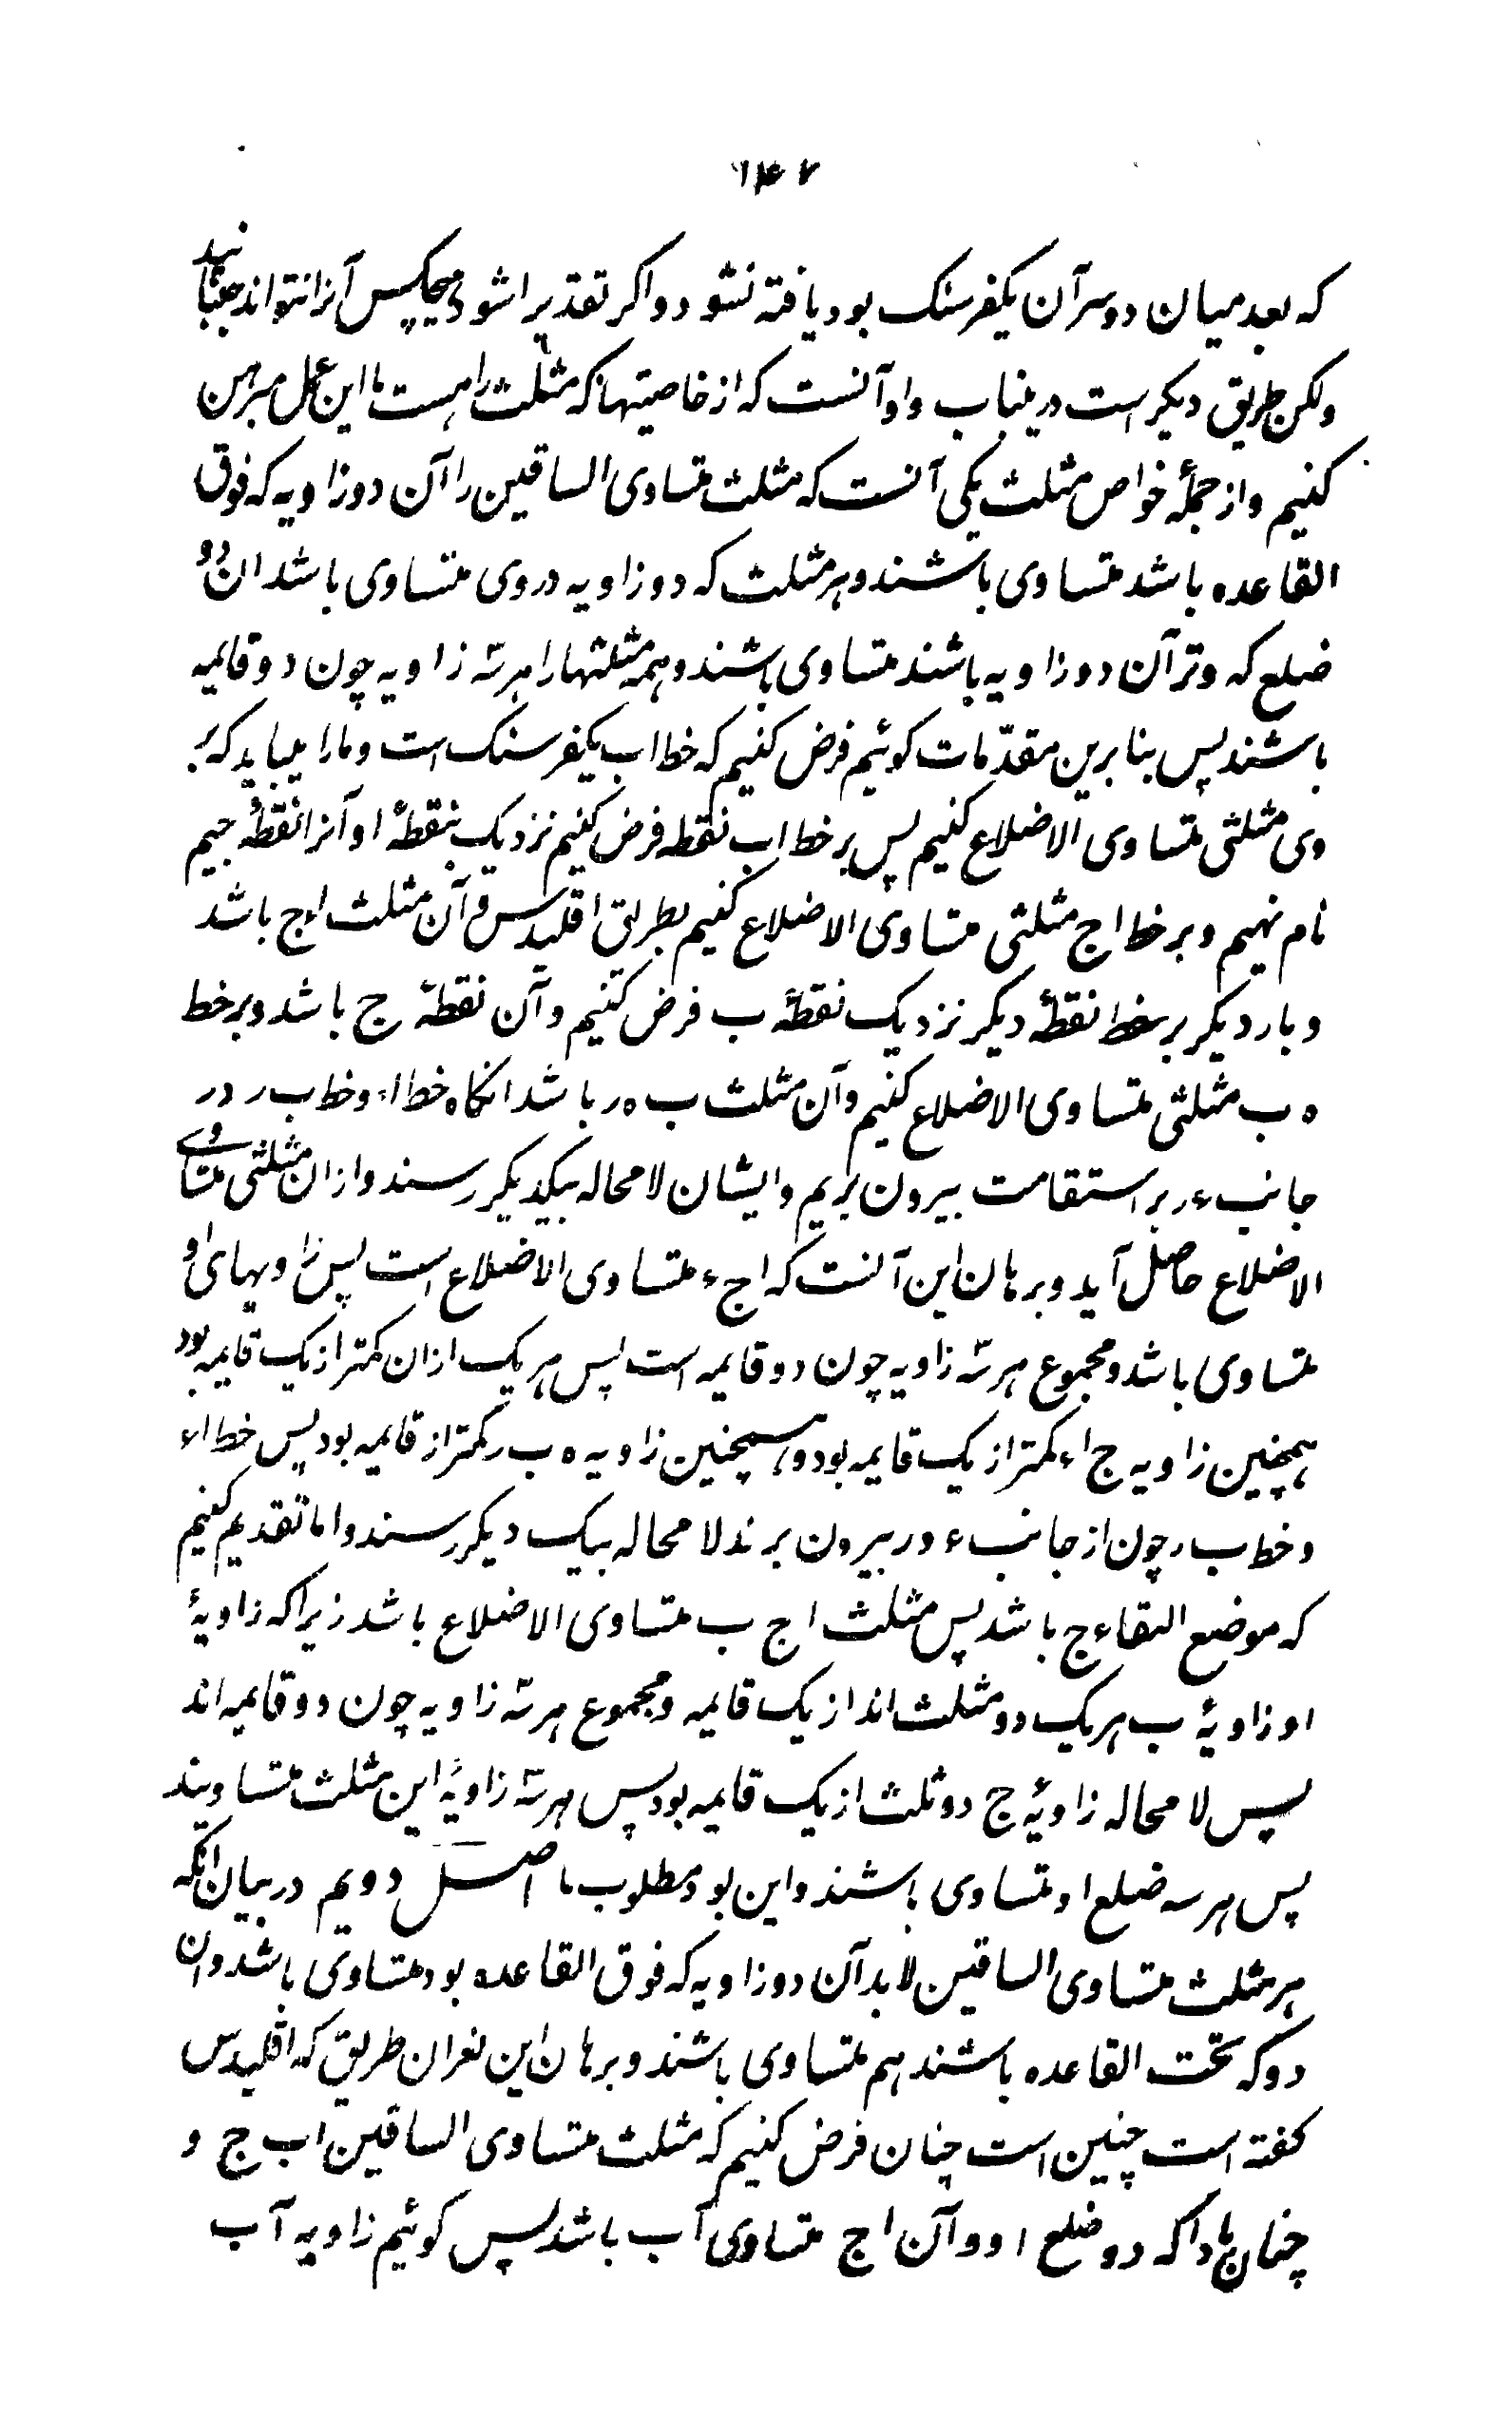 ۱۴۷
که بعد میان دو سر آن یکفرسنک بود یافته نشود و اکر تقدیرا شود هیچکس آنرا نتواند جنبانید
ولکن طریق دیکر است درینباب و او آنست که از خاصیتها که مثلث را هست ما این عمل مبرهن
کنیم و از جملهٔ خواص مثلث یکی آنست که مثلث متساوی الساقین را آن دو زاویه که فوق
القاعده باشد متساوی باشند و هر مثلث که دو زاویه در وی متساوی باشد ان دو
ضلع که وتر آن دو زاویه باشند متساوی باشند و همه مثلثها را هر سه زاویه چون دو قایمه
باشند پس بنا برین مقدّمات کوئیم فرض کنیم که خط اب یکفرسنک است و ما را میباید که بر
وی مثلثی متساوی الاضلاع کنیم پس بر خط اب نقطه فرض کنیم نزدیک بنقطهٔ ا و آنرا نقطهٔ جیم
نام نهیم و بر خط اج مثلثی متساوی الاضلاع کنیم بطریق اقلیدس و آن مثلث اءج باشد
و بار دیکر بر خط نقطهٔ دیکر نزدیک نقطهٔ ب فرض کنیم و آن نقطهٔ ح باشد و بر خط
ه ب مثلثی متساوی الاضلاع کنیم و آن مثلث ب ه ر باشد انکاه خط اء و خط ب ر در
جانب ء ر بر استقامت بیرون بریم و ایشان لا محاله بیکدیکر رسند و ازان مثلثی متساوی
الاضلاع حاصل آید و برهان این آنست که اج ء متساوی الاضلاع است پس زاویهای او
متساوی باشد و مجموع هر سه زاویه چون دو قایمه است پس هر یک ازان کمتر از یک قایمه بود
همچنین زاویه ج اء کمتر از یک قایمه بود و همچنین زاویه ه ب ر کمتر از قایمه بود پس خط اء
و خط ب ر چون از جانب ء و ر بیرون برند لا محاله بیک دیکر رسند و اما تقدیم کنیم
که موضع التقاء ح باشد پس مثلث ا ح ب متساوی الاضلاع باشد زیرا که زاویهٔ
ا و زاویهٔ ب هر یک دو مثلث اند از یک قایمه و مجموع هر سه زاویه چون دو قایمه اند
پس لا محاله زاویهٔ ح دو ثلث از یک قایمه بود پس هر سه زاویهٔ این مثلث متساویند
پس هر سه ضلع او متساوی باشند و این بود مطلوب ما اصل دویم در بیان انکه
هر مثلث متساوی الساقین لابد آن دو زاویه که فوق القاعده بود متساوی باشد و ان
دو که تحت القاعده باشند هم متساوی باشند و برهان این نه بران طریق که اقلیدس
کفته است چنین است چنان فرض کنیم که مثلث متساوی الساقین اب ج و
چنان بادا که دو ضلع ا و و آن ا ج متساوی ا ب باشد پس کوئیم زاویه آ ب